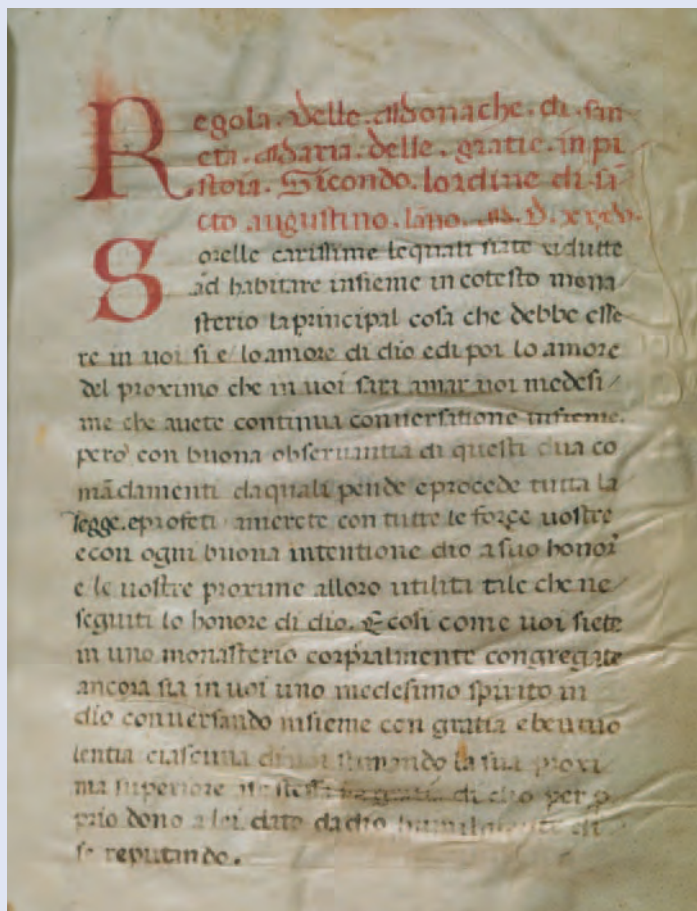 Regola. delle. Monache. di. san
cta. Maria. delle. gratie. in pi
stoia. Sicondo. lordine di. sā
cto augustino. lāno. M. D. xxxv.
Sorelle carissime lequali siate ridutte
ad habitare insieme in cotesto mona
sterio la principal cosa che debbe esse
re in uoi si e/ lo amore di dio edi poi lo amore
del proximo che in uoi sara amar uoi medesi/
me che auete continua conuersatione insieme.
pero con buona obseruantia di questi dua co
mādamenti daquali pende eprocede tutta la
legge. eprofeti amerete con tutte le forze uostre
econ ogni buona intentione dio a suo honor
e le uostre proxime alloro utilita tale che ne
seguiti lo honore di dio. E cosi come uoi siete
in uno monasterio corpralmente congregate
ancora sia in uoi uno medesimo spirito in
dio conuersando insieme con gratia ebeniuo
lentia ciascuna di uoi stimando la sua proxi
ma superiore a se stessa di dio per p
prio dono a lei dato da dio humilmente
se reputando.